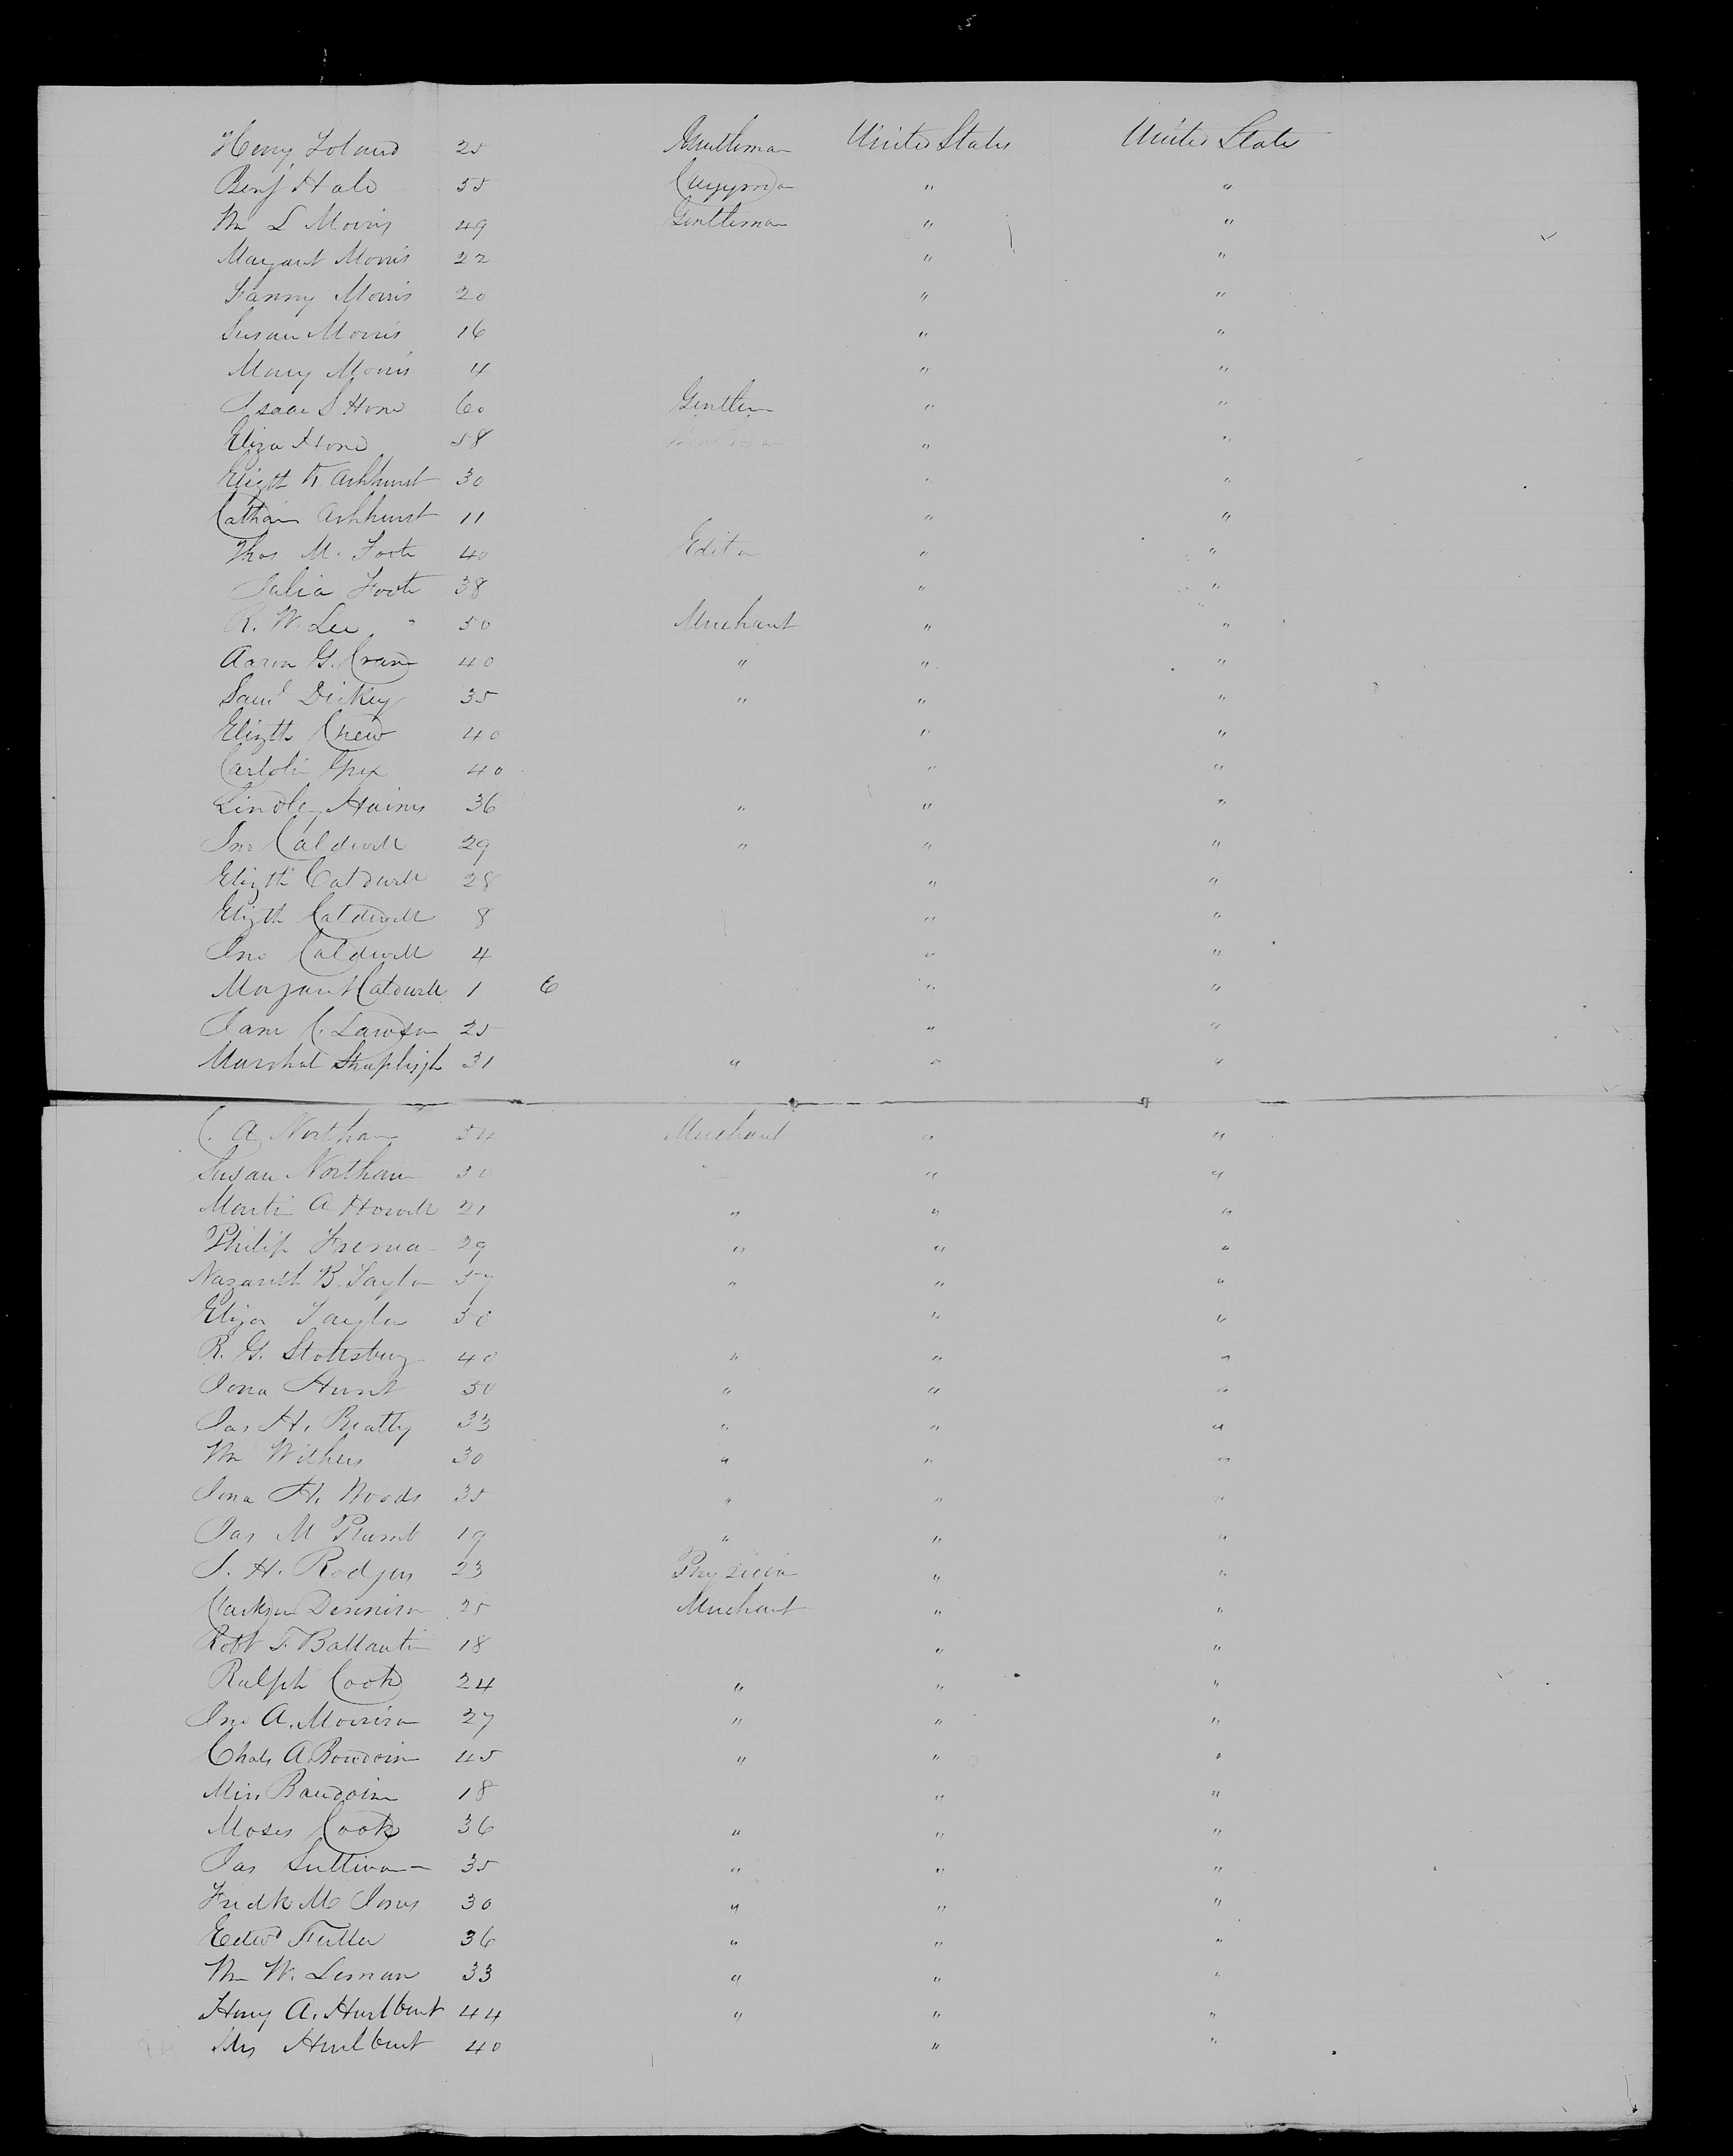 Henry Toland 25 Gentleman United States United States
Benj Hale 55 Clergyman " "
Wm L Morris 49 Gentleman " "
Margaret Morris 22 " "
Fanny Morris 20 " "
Susan Morris 16 " "
Mary Morris 4 " "
Isaac S Hone 60 Gentlem " "
Eliza Hone 58 " "
Elizth Ashhurst 30 " "
Cathain Ashhurst 11 " "
Thos M. Foote 40 Editor " "
Foote 38 " "
R. W. Lee 50 Merchant " "
Aaron G. Crane 40 " " "
Saml Dickey 35 " " "
Elizth Chew 40 " "
40 " "
Lindley Haines 36 " " "
Jno Caldwell 29 " " "
Elizth Caldwell 28 " "
Elizth Caldwell 8 " "
Jno Caldwell 4 " "
Margaret Caldwell 1 6 " "
Jane C. Lawson 25 " "
Marshal Shapleigh 31 " " "
C. A Northam 54 Merchant " "
Susan Northam 50 " "
Martin A Howell 21 " " "
Philip 29 " " "
Nazareth B. Taylor 57 " " "
Eliza Taylor 50 " "
R. G. Stottsbury 40 " " "
Jona Hunt 50 " " "
Jas H. Beatty 33 " " "
Wm Withers 30 " " "
Jona H. Woods 35 " " "
Jas M Plumb 19 " " "
S. H. Rodgers 23 Physician " "
Dennison 25 Merchant " "
Robt T. Ballantin 18 " "
Ralph Cook 24 " " "
Jno A. Morrison 27 " " "
Chas A Baudoin 45 " " "
Miss Baudoin 18 " "
Moses Cook 36 " " "
Jas Sullivan 35 " " "
Fredk M Jones 30 " " "
Edwd Fuller 36 " " "
Wm W. Leman 33 " " "
Henry A. Hurlbut 44 " " "
Mrs Hurlbut 40 " "